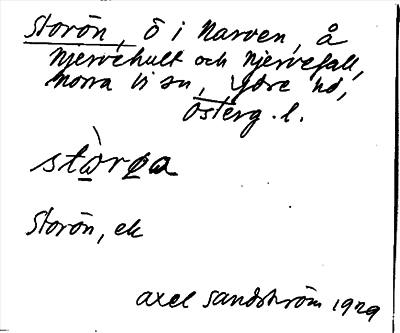 Storön, ö i Narven, å
Njervehult och Njervefall,
Norra Vi sn, Ydre hd,
Österg.l.
Storön, ek
Axel Sandström 1929